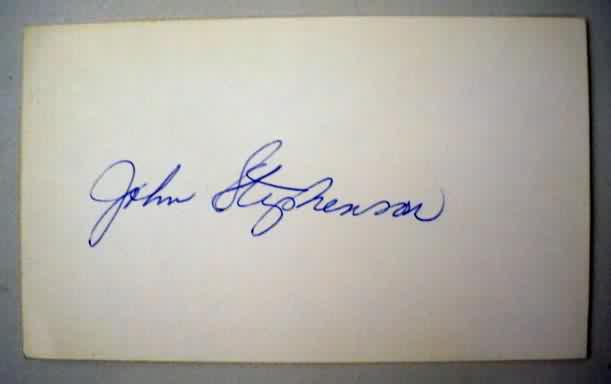 John Stephenson